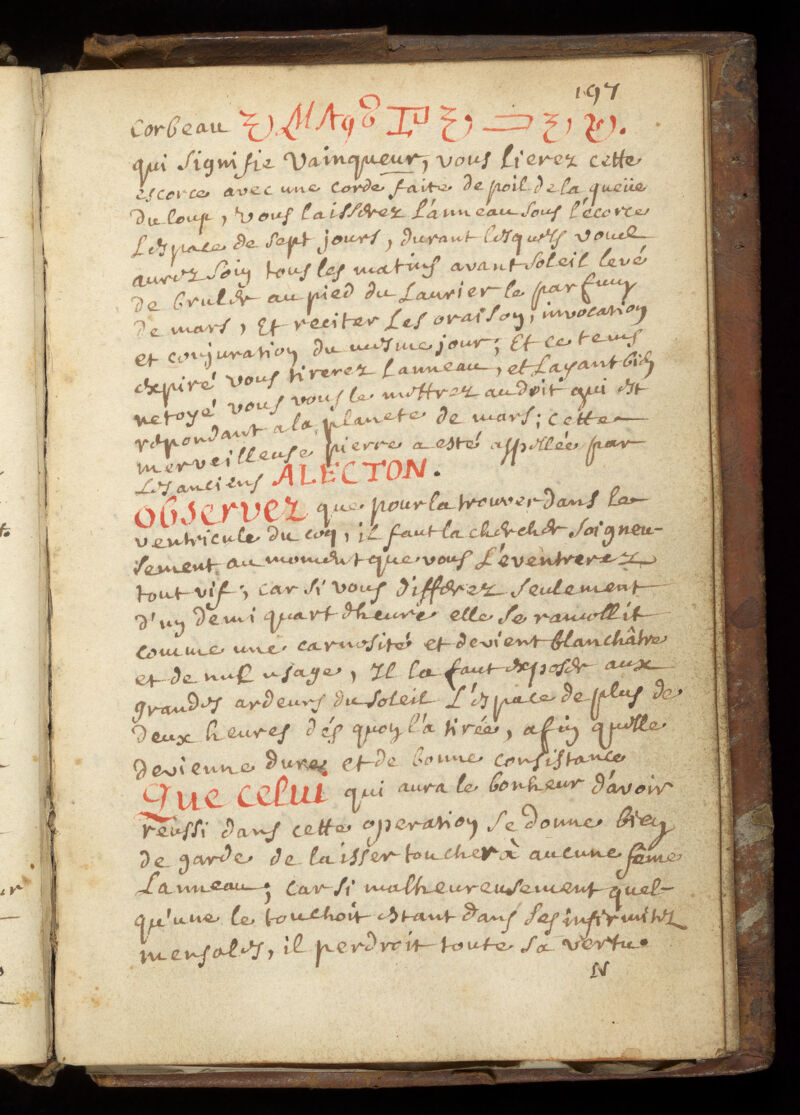 197
Corbeau
qui signifie Vainqueur, vous lierez cette
escorce avec une corde faite de poil de la queüe
du loup, vous laisserez L'anneau sous l'écorce
L'espace de sept jours, durant lesquels vous
aurez soin tous les matins avant soleil levé
de bruler au pied du Laurier le parfum
de mars, Et reciter Les oraison, invocation
et conjuration du mesme jour; Et ce tems
expiré vous tirerez L'anneau, et L'ayant bien
netoyé vous vous le mettrez au doit qui est
repondant a la planete de mars; Cette
merveilleuse pierre a esté appellée par
Les anciens ALECTON.
Observez que pour la trouver dans le
ventricule du coq, il faut la chercher soigneu-
sement au moment que vous L'éventrerez
tout vif; car si vous differez seulement
d'un demi quart dheure elle se ramollit
comme une carnosité et devient blanchâtre
et de nul usage, Il la faut exposer aux
grandes ardeurs du soleil L'espace de plus de
deux heures dés quoy l'a tirée, afin quelle
devienne dure et de bonne consistance
Que celui qui aura le bonheur d'avoir
reussi dans cette operation se donne bien
de garde de laisser toucher à aucune fême
L'anneau; Car si malheureusement quel-
qu'une le touchoit estant dans ses infirmitez
mensales, il perdroit toute sa vertu.
N